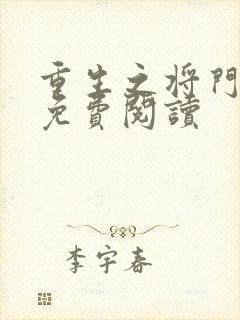 重生之将門
免費閱讀
李宇春